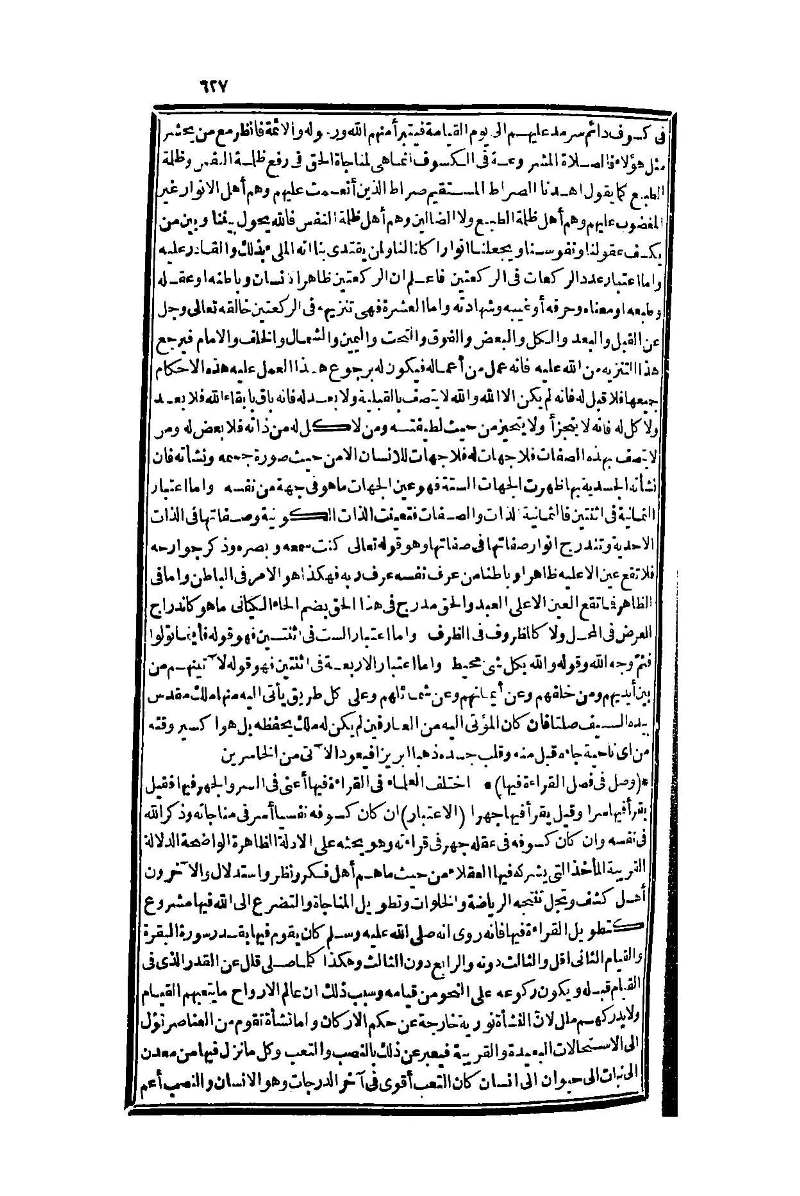 ٦٢٧
فى كسوف دائم سرمد عليهم الى يوم القيامة فيتبرأ منهم الله ورسوله والائمة فانظر مع من يحشر
مثل هؤلاء فالصلاة المشروعة فى الكسوف انما هى لمناجاة الحق فى رفع ظلمة النفس وظلة
الطبع كما يقول اهدنا الصراط المستقيم صراط الذين أنعمت عليهم وهم أهل الانوار غير
المغضوب عليهم وهم أهل ظلمة الطبع ولا الضالين وهم أهل ظلمة النفس فالله يحول بيننا وبين من
يكسف عقولنا ونفوسنا ويجعلنا انوارا كلنا لنا ولمن يقتدى بنا انه الملى بذلك والقادر عليه
واما اعتبار عدد الركعات فى الركعتين فاعلم ان الركعتين ظاهر الانسان وباطنه او عقله
وطبعه او معناه وحرفه أو غيبه وشهادته واما العشرة فهى تنزيهه فى الركعتين خالقه تعالى وجل
عن القبل والبعد والكل والبعض والفوق والتحت واليمين والشمال والخلف والامام فيرجع
هذا التنزيه من الله عليه فانه عمل من أعماله فيكون له برجوع هذا العمل عليه هذه الاحكام
جميعها فلا قبل له فانه لم يكن الا الله والله لا يتصف بالقبلية ولا بعد له فانه باق بابقاء الله فلا بعد
ولا كل له فانه لا يتجزأ ولا يتحيز من حيث لطيفته ومن لا كل له من ذاته فلا بعض له ومن
لا يتصف بهذه الصفات فلا جهات له فلا جهات للانسان الا من حيث صورة جسمه ونشأته فان
نشأته الجسدية بها ظهرت الجهات الستة فهو عين الجهات ما هو فى جهة من نفسه واما اعتبار
الثمانية فى اثنتين فالثمانية لذات والصفات فتغيبت الذات الكونية وصفاتها فى الذات
الاحدية وتندرج انوار صفاتها فى صفاتها وهو قوله تعالى كنت سمعه وبصره وذكر جوارحه
فلا تقع عين الا عليه ظاهرا وباطنا من عرف نفسه عرف ربه فهكذا هو الامر فى الباطن واما فى
الظاهر فما تقع العين الا على العبد والحق مدرج فى هذا الحق بضم الحاء الكيانى ما هو كاندراج
العرض فى المحل ولا كالمظروف فى الظرف واما اعتبار الست فى اثنتين فهو قوله فأينما تولوا
فثم وجه الله وقوله والله بكل شئ محيط واما اعتبار الاربعة فى اثنتين فهو قوله لآتينهم من
بين أيديهم ومن خلفهم وعن أيمانهم وعن شمائلهم وعلى كل طريق يأتى اليه منها ملك مقدس
بيده السيف صلتا فان كان المؤتى اليه من العارفين لم يكن له ملك يحفظه بل هو اكسير وقته
من اى ناحية جاءه قبل منه وقلب جسده ذهبا ابريزا فيعود الآتى من الخاسرين
*(وصل فى فصل القراءة فيها)* اختلف العلماء فى القراءة فيها أعنى فى السر والجهر فيها فقيل
يقرأ فيها سرا وقيل يقرأ فيها جهرا (الاعتبار) ان كان كسوفه نفسيا أسر فى مناجاته وذكر الله
فى نفسه وان كان كسوفه فى عقله جهر فى قراءته وهو بحثه على الادلة الظاهرة الواضحة الدلالة
القريبة المأخذ التى يشركه فيها العقلاء من حيث ما هم أهل فكر ونظر واستدلال والآخرون
أهل كشف وتجل تنتجه الرياضة والخلوات وتطويل المناجاة والتضرع الى الله فيها مشروع
كتطويل القراءة فيها فانه روى انه صلى الله عليه وسلم كان يقوم فيها بقدر سورة البقرة
والقيام الثانى اقل والثالث دونه والرابع دون الثالث وهكذا كلما صلى قلل عن القدر الذى فى
القيام قبله ويكون ركوعه على النحو من قيامه وسبب ذلك ان عالم الارواح ما يتعبهم القيام
ولا يدركهم ملل لان النشأة نورية خارجة عن حكم الاركان واما نشأة تقوم من العناصر تؤل
الى الاستحالات البعيدة والقريبة فيعبر عن ذلك بالنصب والتعب وكل ما نزل فيها من معدن
الى نبات الى حيوان الى انسان كان التعب أقوى فى آخر الدرجات وهو الانسان والنصب أعم